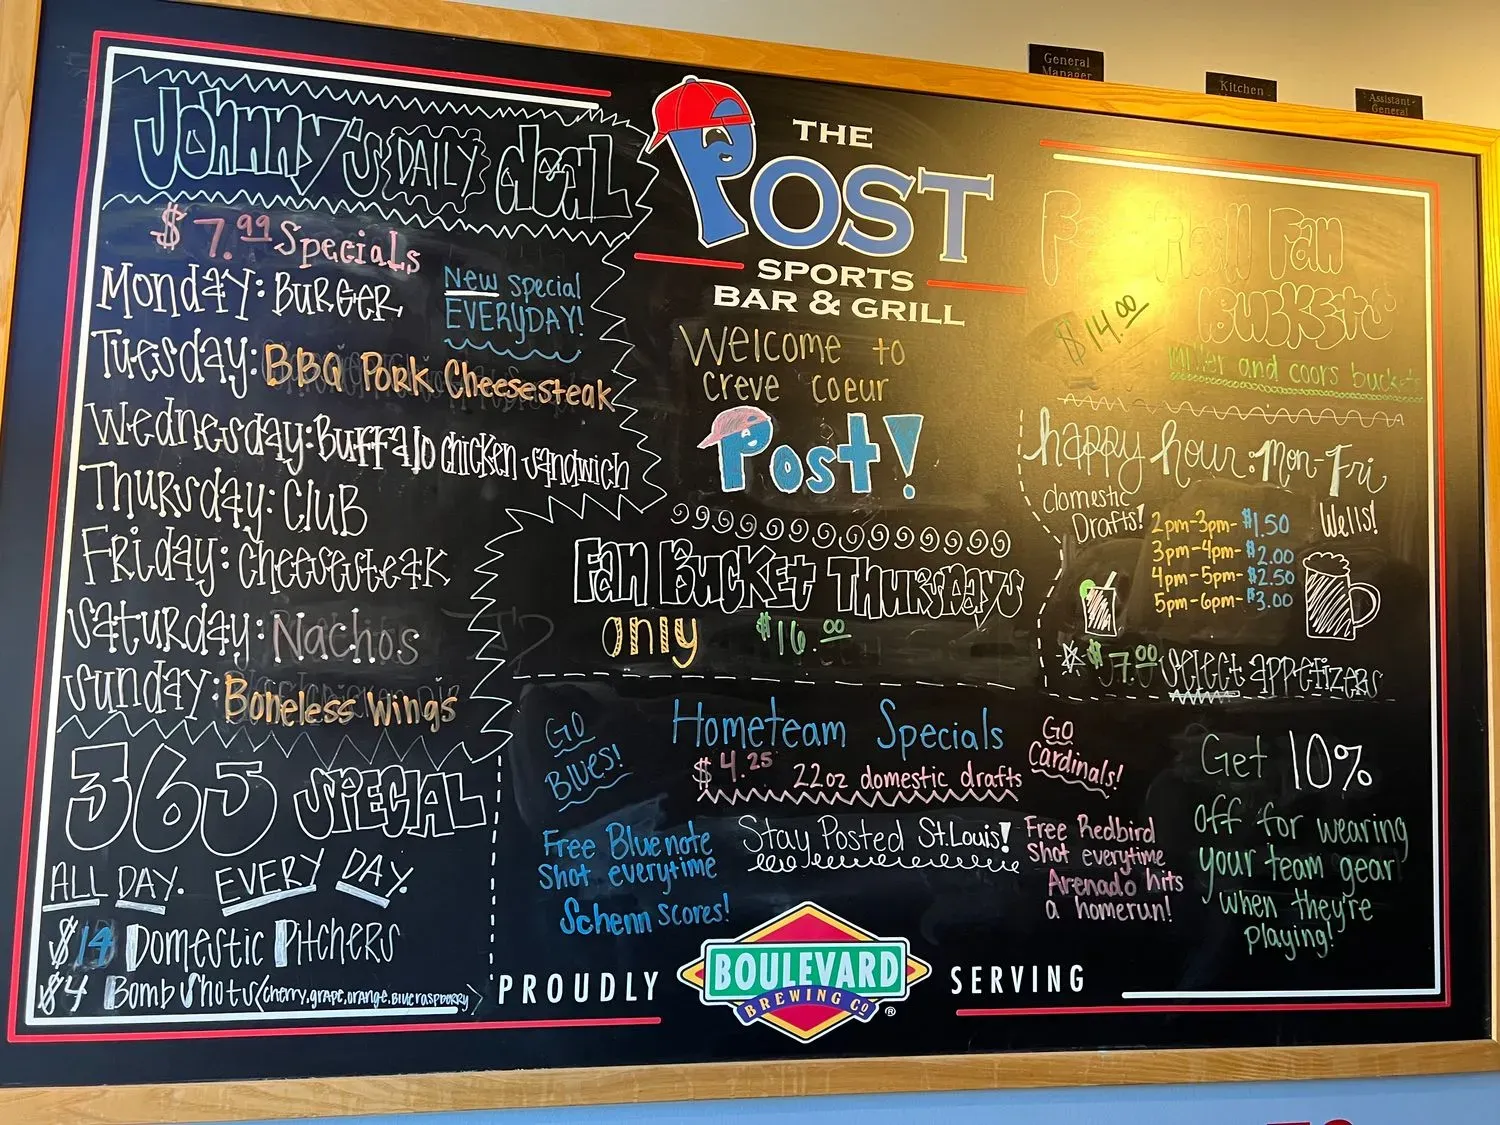 General
Manager
Kitchen
Assistant
General
Johnny's DAILY deal
$7.99 Specials
Monday: BURGER
New special
EVERYDAY!
Tuesday: BBQ Pork Cheesesteak
Wednesday: Buffalo chicken sandwich
Thursday: Club
Friday: Cheesesteak
Saturday: Nachos
Sunday: Boneless Wings
365 SPECIAL
ALL DAY. EVERY DAY.
$14 Domestic Pitchers
$4 Bomb Shots (cherry, grape, orange, Blue raspberry)
THE
POST
SPORTS
BAR & GRILL
Welcome to
creve coeur
Post!
Fan Bucket Thursdays
only $16.00
Fan
Buckets
$14.00
Miller and coors buckets
happy hour: Mon-Fri
domestic
Drafts!
2pm-3pm- $1.50
3pm-4pm- $2.00
4pm-5pm- $2.50
5pm-6pm- $3.00
Wells!
$7.00 select appetizers
GO
Blues!
Hometeam Specials
$4.25 22oz domestic drafts
GO
Cardinals!
Free Bluenote
Shot everytime
Schenn scores!
Stay Posted St.Louis!
Free Redbird
Shot everytime
Arenado hits
a homerun!
Get 10%
off for wearing
your team gear
when they're
playing!
PROUDLY
BOULEVARD
BREWING Co
®
SERVING